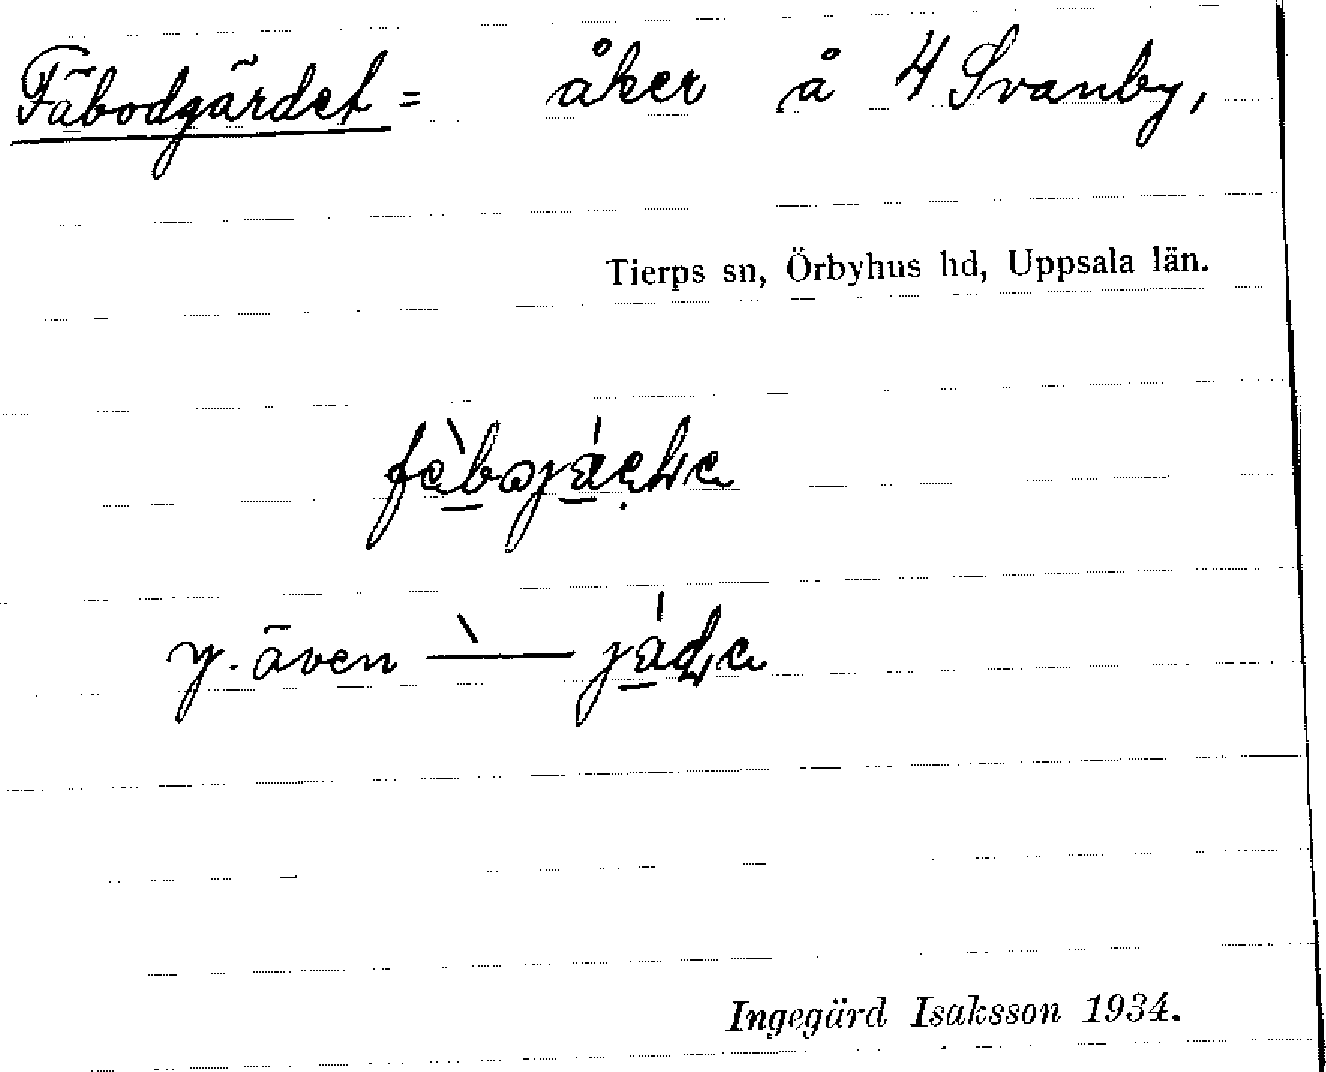 Fäbodgärdet = åker å 4 Svanby,
Tierps sn, Örbyhus hd, Uppsala län.
y. även
Ingegärd Isaksson 1934.